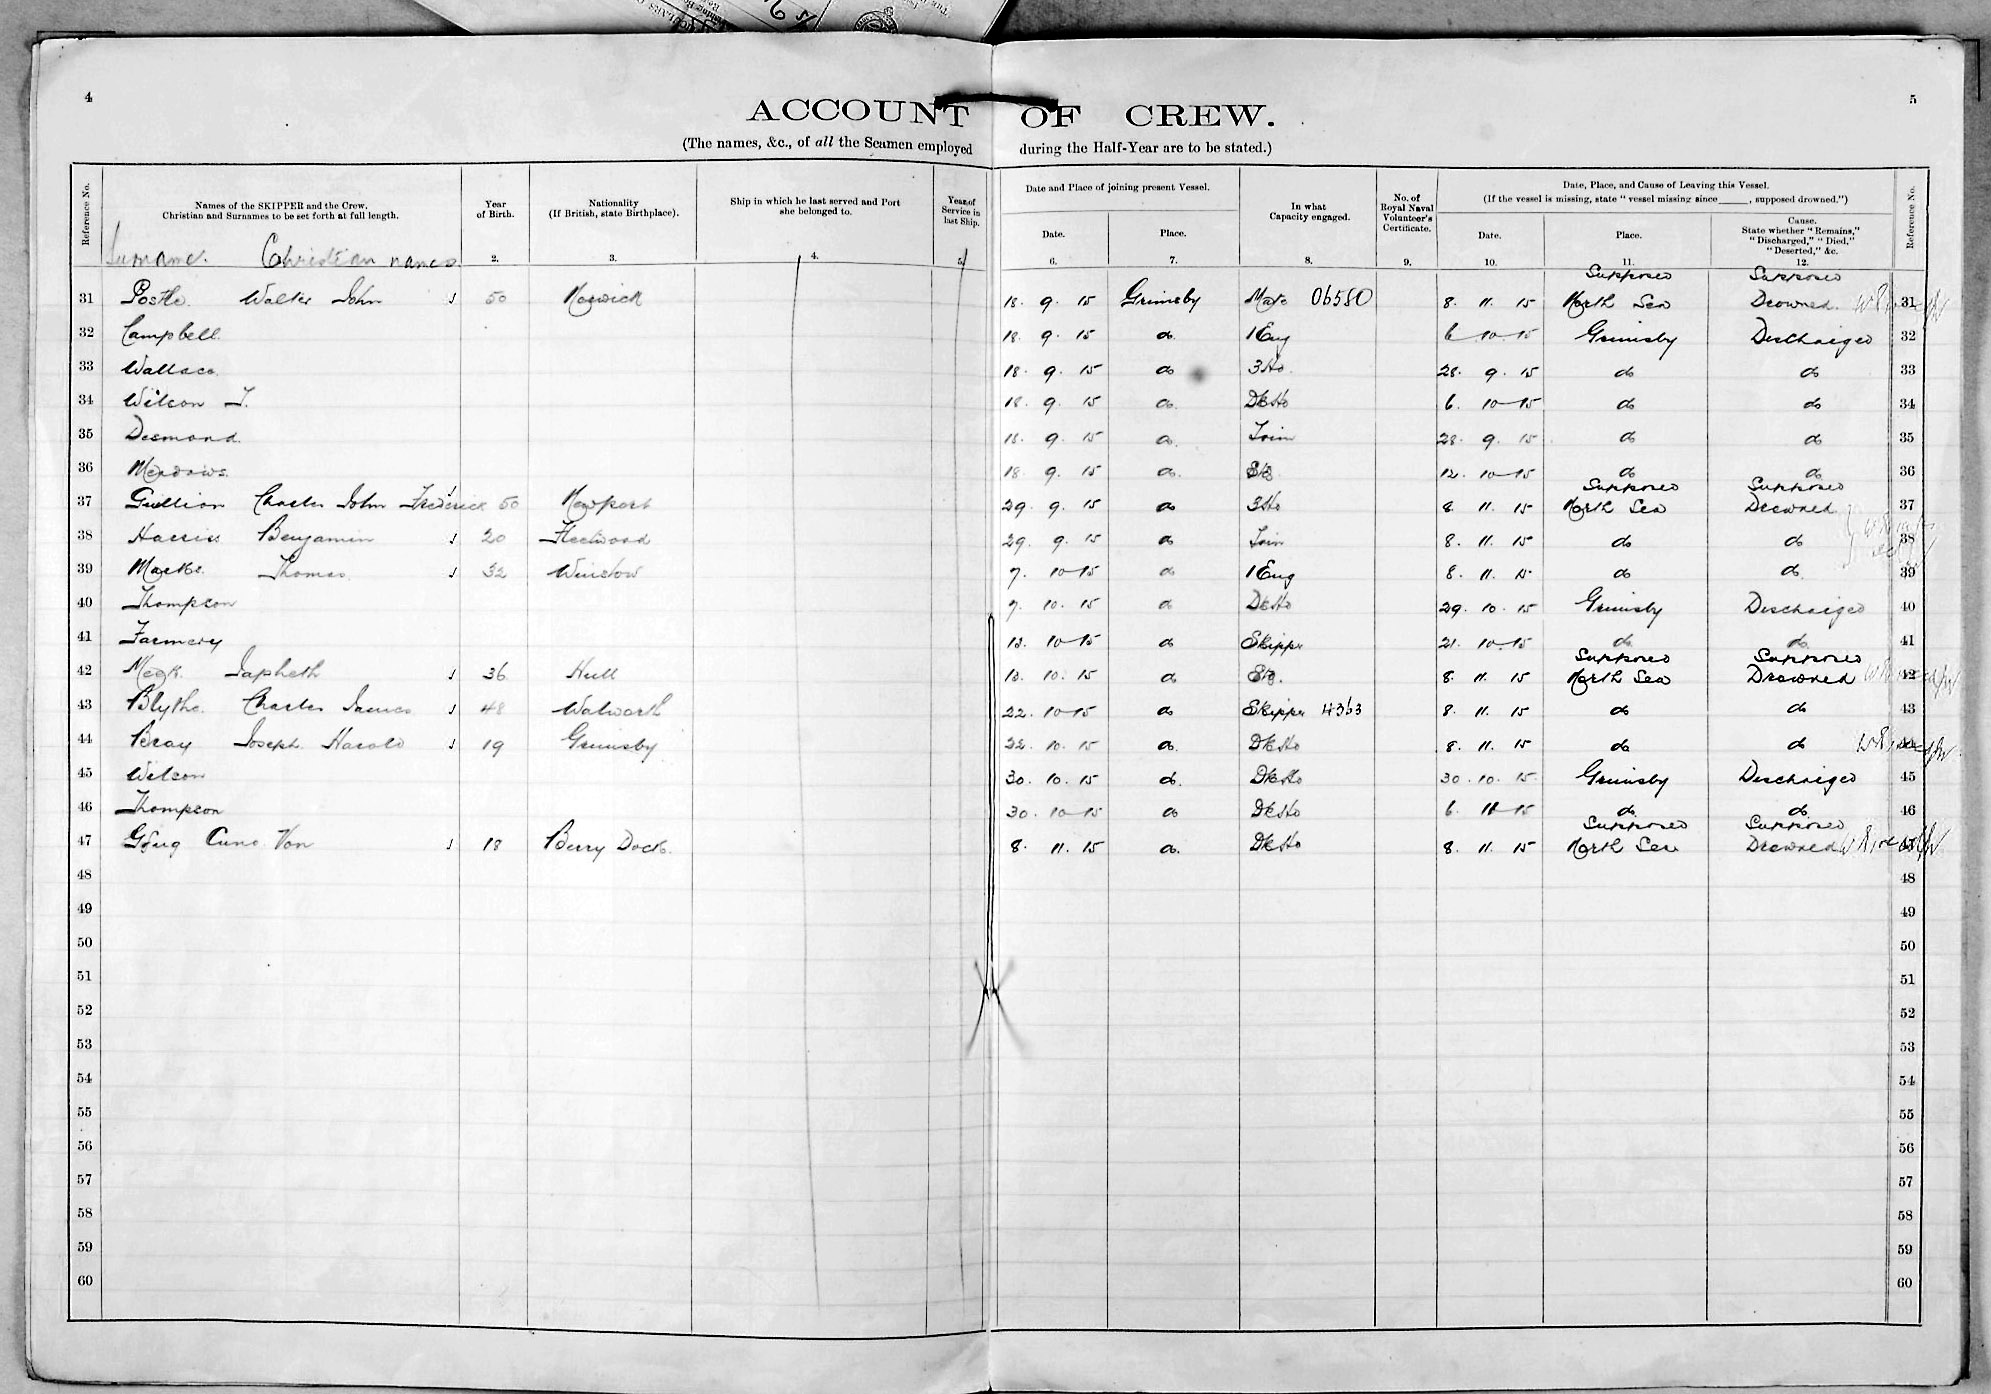 4
5
ACCOUNT OF CREW.
(The names, &c., of all the Seamen employed during the Half-Year are to be stated.)
Reference No.
Names of the SKIPPER and the Crew.
Christian and Surnames to be set forth at full length.
Surname. Christian names
Year of Birth.
2.
Nationality
(If British, state Birthplace).
3.
Ship in which he last served and Port she belonged to.
4.
Year of Service in last Ship.
5.
Date and Place of joining present Vessel.
Date.
6.
Place.
7.
In what Capacity engaged.
8.
No. of Royal Naval Volunteer's Certificate.
9.
Date, Place, and Cause of Leaving this Vessel.
(If the vessel is missing, state "vessel missing since____, supposed drowned.")
Date.
10.
Place.
11.
Cause.
State whether "Remains," "Discharged," "Died," "Deserted," &c.
12.
Reference No.
31 Postle. Walter John 50 Norwick 18. 9. 15 Grimsby Mate 06580 8. 11. 15 Supposed North Sea Supposed Drowned. 31
32 Campbell. 18. 9. 15 do 1 Eng 6 10 15 Grimsby Discharged 32
33 Wallace. 18. 9. 15 do 3Ho. 28. 9. 15 do do 33
34 Wilson T. 18. 9. 15 do. DkHo 6. 10 15 do do 34
35 Desmond. 18. 9. 15 do. Trim 28. 9. 15 do do 35
36 Meadows. 18. 9. 15 do. 12. 10 15 do do 36
37 Gullion Charles John Frederick 50 Newport 29. 9. 15 do 3Ho 8 11. 15 Supposed North Sea Supposed Drowned 37
38 Harris Benjamin 20 Fleetwood 29. 9. 15 do Trim 8. 11. 15 do do 38
39 Marks. Thomas. 32 Winslow 7. 10 15 do 1 Eng 8. 11. 15 do do 39
40 Thompson 7. 10. 15 do DkHo 29. 10. 15 Grimsby Discharged 40
41 Farmery 13. 10 15 do Skipper 21. 10. 15 do do 41
42 Meek. Japheth 36 Hull 13. 10. 15 do 8. 11. 15 Supposed North Sea Supposed Drowned 42
43 Blythe. Charles James 48 Walworth 22. 10 15 do Skipper 4363 8. 11. 15 do do 43
44 Bray Joseph Harold 19 Grimsby 22. 10. 15 do. DkHo 8. 11. 15 do do 44
45 Wilson 30. 10. 15 do. DkHo 30. 10. 15 Grimsby Discharged 45
46 Thompson 30. 10 15 do DkHo 6. 11 15 do do 46
47 Cuno Von 18 Berry Dock. 8. 11. 15 do. DkHo 8. 11. 15 Supposed North Sea Supposed Drowned 47
48 48
49 49
50 50
51 51
52 52
53 53
54 54
55 55
56 56
57 57
58 58
59 59
60 60